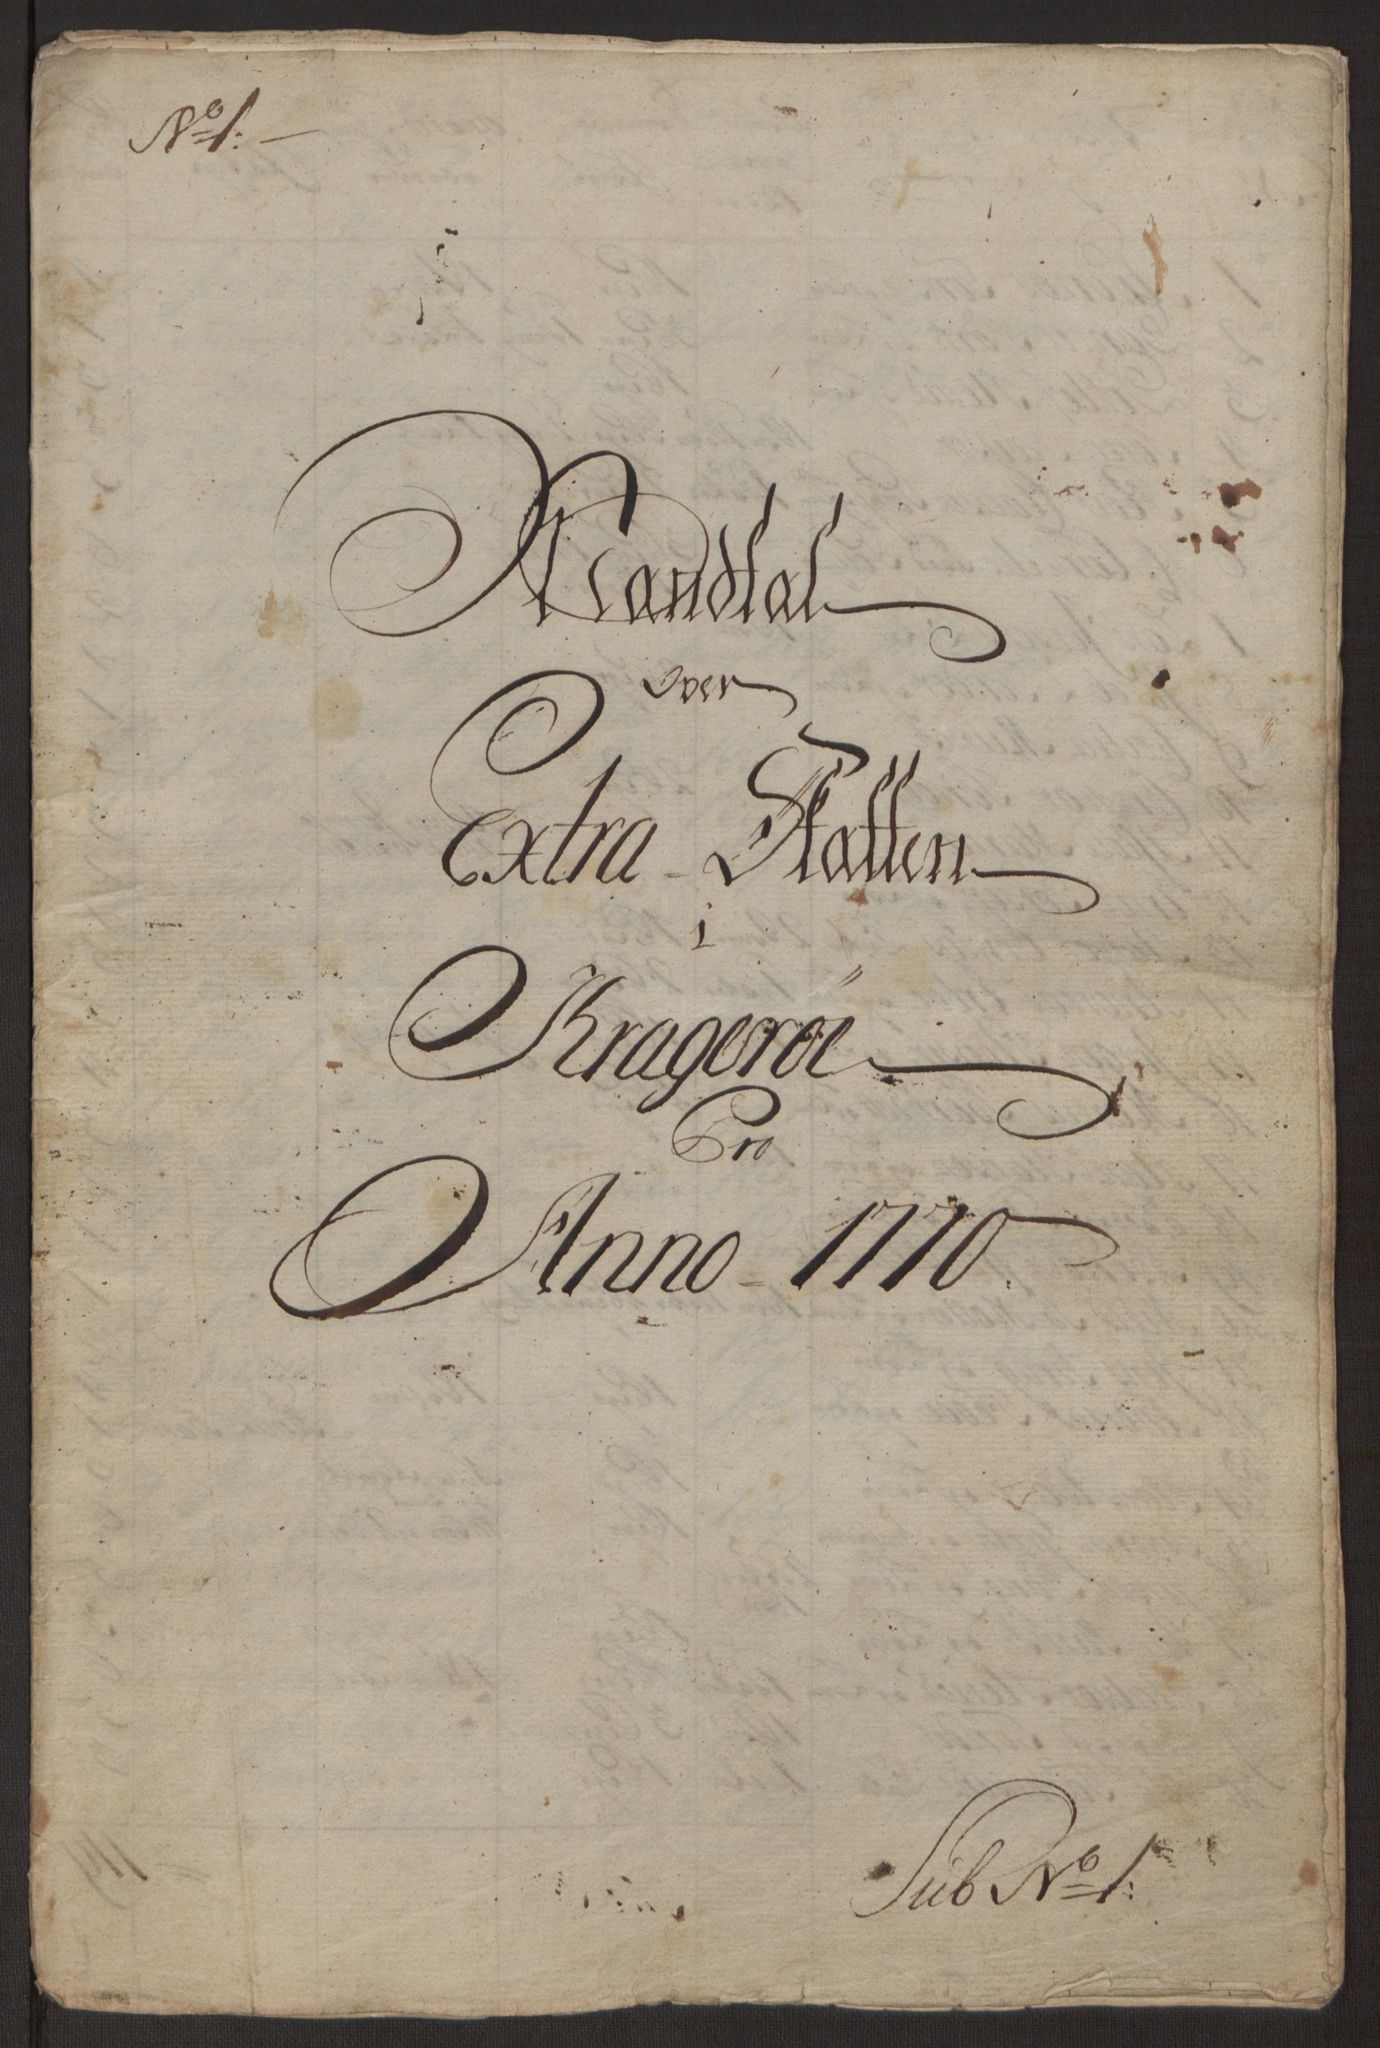 No 1.
Mandtal
over
Extra-Skatten
i
Kragerøe
Pro
Anno-1770.
Sub No 1: